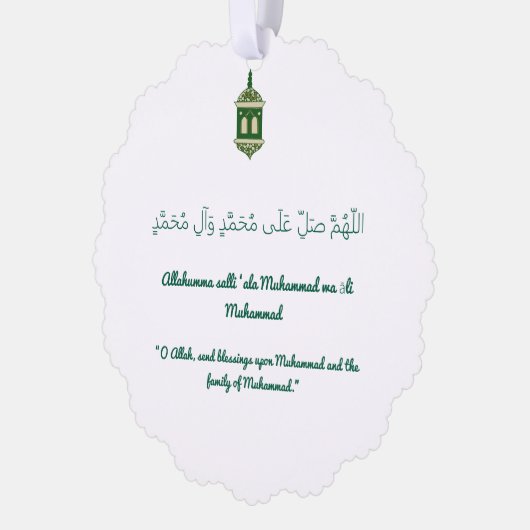 اللّهُمَّ صَلِّ عَلَى مُحَمَّدٍ وَآلِ مُحَمَّدٍ
Allahumma salli 'ala Muhammad wa āli
Muhammad
"O Allah, send blessings upon Muhammad and the
family of Muhammad."